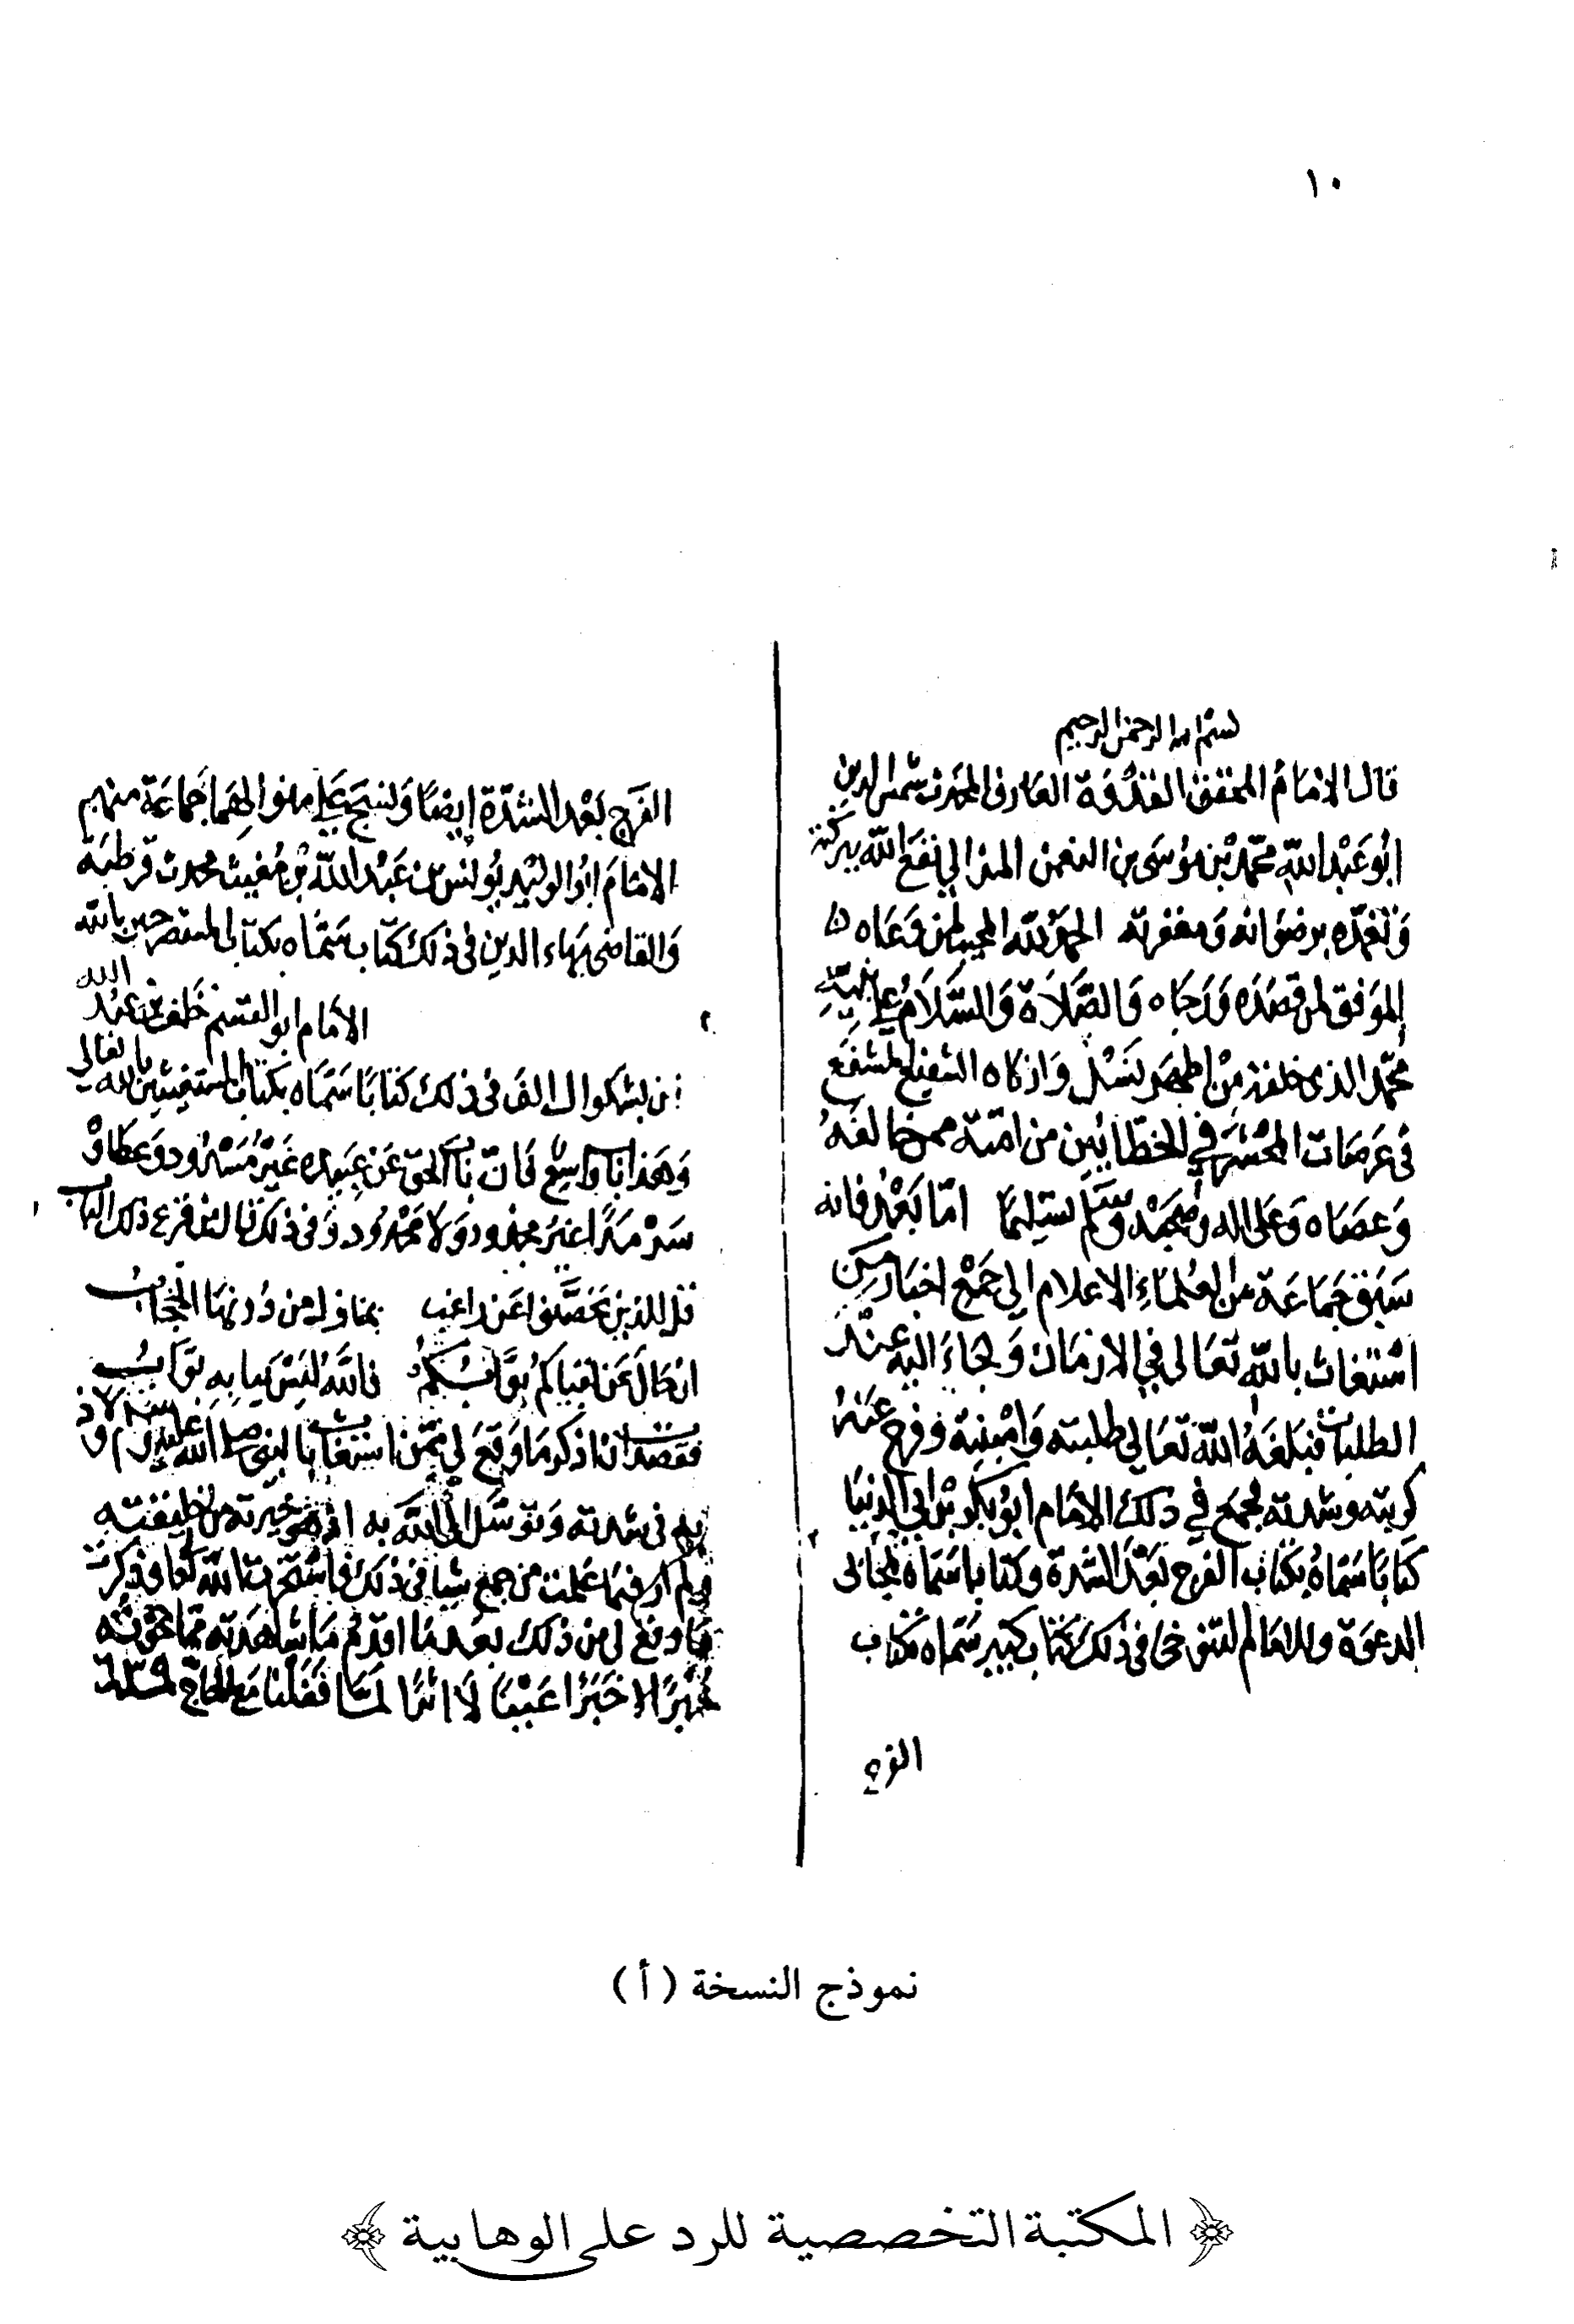 ١٠
بسم الله الرحمن الرحيم
قال الامام المحقق القدوة العارف المحدث شمس الدين
ابو عبد الله محمد بن موسى بن النعمن المزالي نفع الله ببركته
وتغمده برضوانه ومغفرته الحمد لله المجيب لمن دعاه
الموفق لمن قصده ورجاه والصلاة والسلام على نبيه
محمد الذى خلقه من اطهر نسل وازكاه الشفيع المشفع
فى عرصات المحشر في الخطائين من امته ممن خالفه
وعصاه وعلى اله وصحبه وسلم تسليما اما بعد فانه
سبق جماعة من العلماء الاعلام الى جمع اخبار من
استغاث بالله تعالى في الازمان ولجاء اليه عند
الطلبات فبلغه الله تعالى طلبته وامنيته وفرج عنه
كربته وشدته فجمع في ذلك الامام ابو بكر بن ابي الدنيا
كتابا سماه بكتاب الفرج بعد الشدة وكتابا سماه بمجابى
الدعوة وللامام التنوخى فى ذلك كتاب كبير سماه كتاب
الفرج
الفرج بعد الشدة ايضا ونسج على منوالهما جماعة منهم
الامام ابو الوليد يونس بن عبد الله بن مغيث محدث قرطبة
والقاضى بهاء الدين فى ذلك كتاب سماه بكتاب المستصرخين بالله
الامام ابو القسم خلف بن عبد الله
بن بشكوال الف فى ذلك كتابا سماه بكتاب المستغيثين بالله تعالى
وهذا باب واسع فان باب الحق عن عبيده غير مسدود وعطاوه
سرمدا غير مجذوذ ولا محدود وفى ذلك قال لمن قرع ذلك الباب
قل للذين تحصنوا عن راغب بمنازل من دونها الحجاب
ان حال عن لقياكم بوابكم فالله ليس لبابه بواب
فقصدت انا اذكر ما وقع لي ممن استغاث بالنبى صلى الله عليه وسلم ولاذ
به فى شدته وتوسل الى الله به اذ هو خيرته من خليقته
ولم ار فيما علمت من جمع شيا فى ذلك فاستخرت الله تعا وذكرت
ما وقع لى من ذلك بعد ما اقدم ما شاهدته مما حققته
خبرا لا خبرا عينا لا اثرا لما قفلنا مع الحاج لسنة ٦٣٩
نموذج النسخة (أ)
المكتبة التخصصية للرد على الوهابية